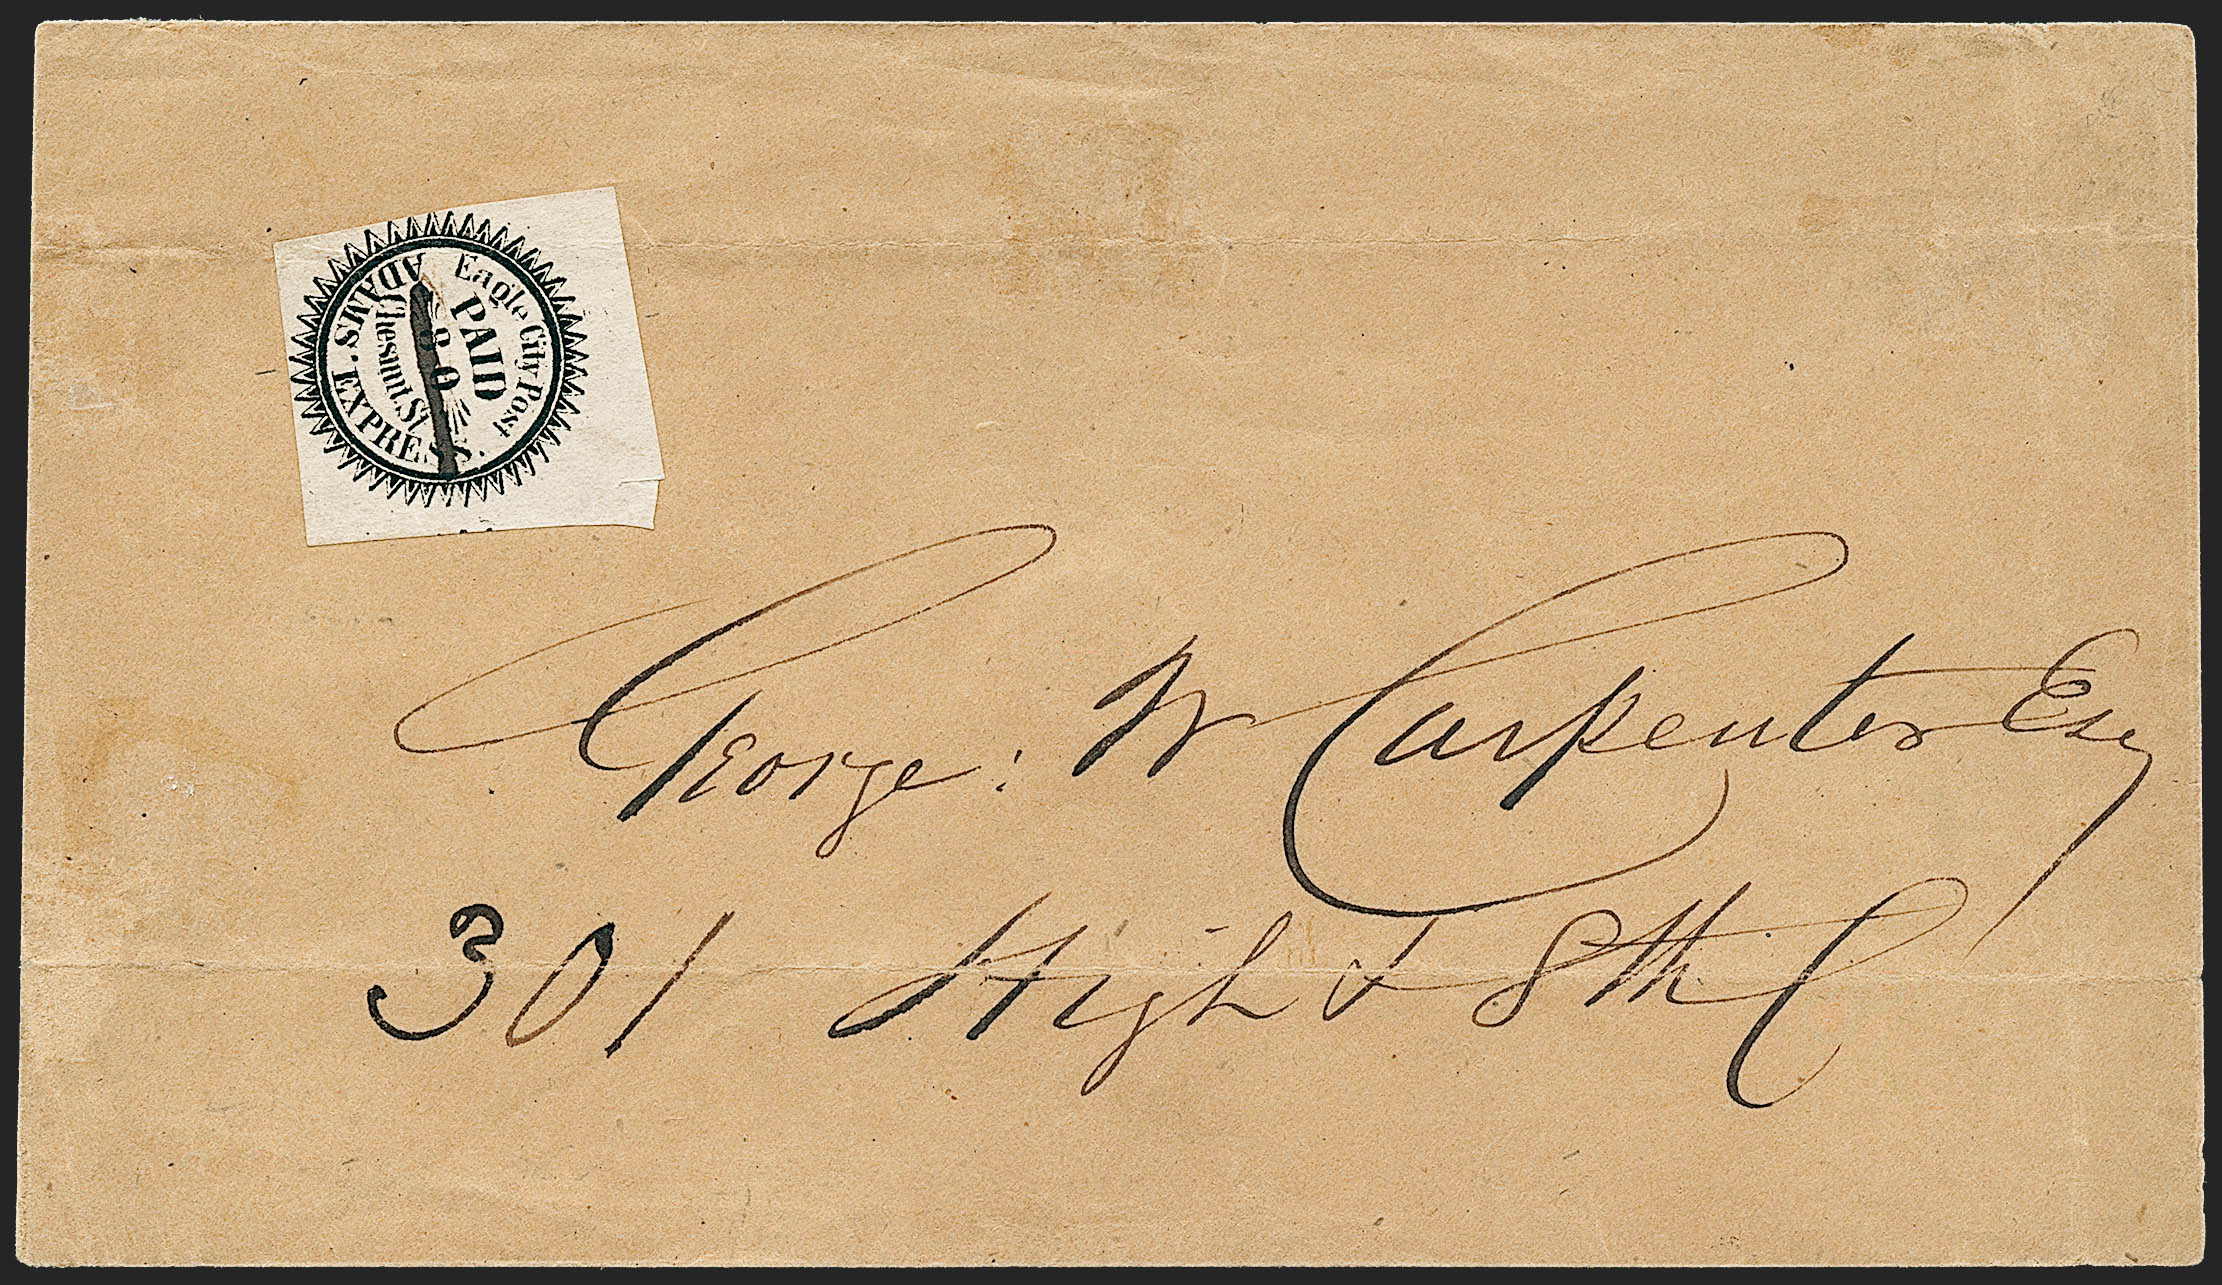 Eagle City Post
PAID
80
Chesnut. St
ADAMS'. EXPRESS.
George: W Carpenter Esq
301 High & 8th